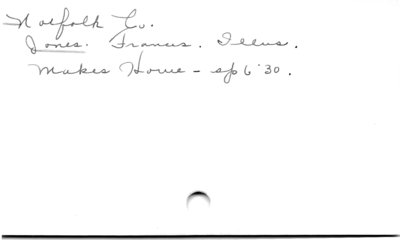 Norfolk Co.
Jones. Francis. Illus.
Makes Home - sp 6 '30.